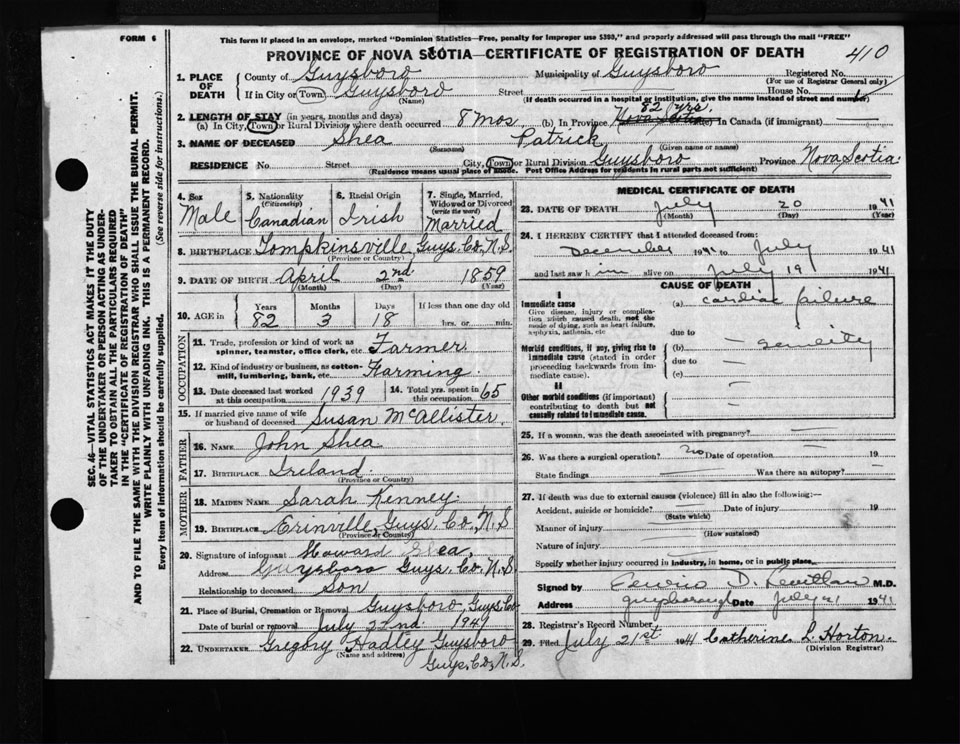 FORM 6
This form if placed in an envelope, marked "Dominion Statistics—Free, penalty for improper use $300," and properly addressed will pass through the mail "FREE"
PROVINCE OF NOVA SCOTIA—CERTIFICATE OF REGISTRATION OF DEATH
410
1. PLACE OF DEATH
County of Guysboro Municipality of Guysboro Registered No.
(For use of Registrar General only)
If in City or Town Guysboro Street House No.
(Name) (If death occurred in a hospital or institution, give the name instead of street and number)
2. LENGTH OF STAY (in years, months and days) 82 yrs.
(a) In City, Town or Rural Division where death occurred 8 mos (b) In Province Nova Scotia (c) In Canada (if immigrant)
3. NAME OF DECEASED Shea Patrick
(Surname) (Given name or names)
RESIDENCE No Street City, Town or Rural Division Guysboro Province Nova Scotia
(Residence means usual place of abode. Post Office Address for residents in rural parts not sufficient)
4. Sex Male
5. Nationality (Citizenship) Canadian
6. Racial Origin Irish
7. Single, Married, Widowed or Divorced (write the word) Married
8. BIRTHPLACE Tompkinsville, Guys. Co, N.S.
(Province or Country)
9. DATE OF BIRTH April 2nd 1859
(Month) (Day) (Year)
10. AGE in Years 82 Months 3 Days 18 If less than one day old hrs. or min.
OCCUPATION
11. Trade, profession or kind of work as spinner, teamster, office clerk, etc. Farmer
12. Kind of industry or business, as cotton-mill, lumbering, bank, etc. Farming.
13. Date deceased last worked at this occupation 1939
14. Total yrs. spent in this occupation 65
15. If married give name of wife or husband of deceased Susan McAllister.
FATHER
16. NAME John Shea
17. BIRTHPLACE Ireland.
(Province or Country)
MOTHER
18. MAIDEN NAME Sarah Kenney.
19. BIRTHPLACE Erinville, Guys. Co, N.S
(Province or Country)
20. Signature of informant Howard Shea,
Address Guysboro Guys. Co. N.S.
Relationship to deceased Son
21. Place of Burial, Cremation or Removal Guysboro, Guys. Co
Date of burial or removal July 22nd. 1941
22. UNDERTAKER Gregory Hadley Guysboro
(Name and address) Guys, Co, N.S.
MEDICAL CERTIFICATE OF DEATH
23. DATE OF DEATH July 20 1941
(Month) (Day) (Year)
24. I HEREBY CERTIFY that I attended deceased from:
December to July 1941
and last saw him alive on July 19 1941
CAUSE OF DEATH
I
Immediate cause
Give disease, injury or complication which caused death, not the mode of dying, such as heart failure, asphyxia, asthenia, etc
(a) cardiac failure
due to
Morbid conditions, if any, giving rise to immediate cause (stated in order proceeding backwards from immediate cause).
(b) senility
due to
(c)
II
Other morbid conditions (if important) contributing to death but not causally related to immediate cause.
25. If a woman, was the death associated with pregnancy?
26. Was there a surgical operation? no Date of operation 19
State findings Was there an autopsy?
27. If death was due to external causes (violence) fill in also the following:—
Accident, suicide or homicide? Date of injury 19
(State which)
Manner of injury
(How sustained)
Nature of injury
Specify whether injury occurred in industry, in home, or in public place.
Signed by D. M.D.
Address Guysborough Date July 21 1941
28. Registrar's Record Number
29. Filed July 21st 1941 Catherine L. Horton.
(Division Registrar)
SEC. 46—VITAL STATISTICS ACT MAKES IT THE DUTY
OF THE UNDERTAKER OR PERSON ACTING AS UNDER-
TAKER TO OBTAIN ALL THE PARTICULARS REQUIRED
IN THE "CERTIFICATE OF REGISTRATION OF DEATH"
AND TO FILE THE SAME WITH THE DIVISION REGISTRAR WHO SHALL ISSUE THE BURIAL PERMIT.
WRITE PLAINLY WITH UNFADING INK. THIS IS A PERMANENT RECORD.
Every item of information should be carefully supplied. (See reverse side for instructions.)